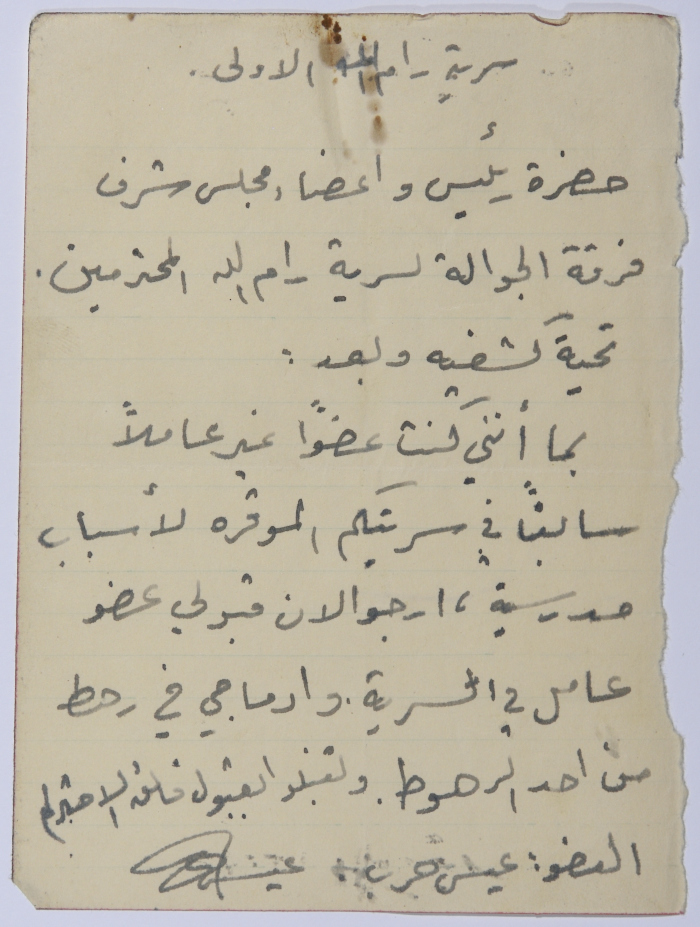 سرية رام الله الاولى .
حضرة رئيس وأعضاء مجلس شرف
فرقة الجوالة لسرية رام الله المحترمين .
تحية كشفيه وبعد :
بما أنني كنت عضوًا غير عاملاً
سابقًا في سريتكم الموقره لأسباب
مدرسية ، ارجو الان قبولي عضو
عامل في السرية . وادماجي في رهط
من احد الرهوط . ولتفضلو بقبول فائق الاحترام
العضو : عيسى حرب . عيسى